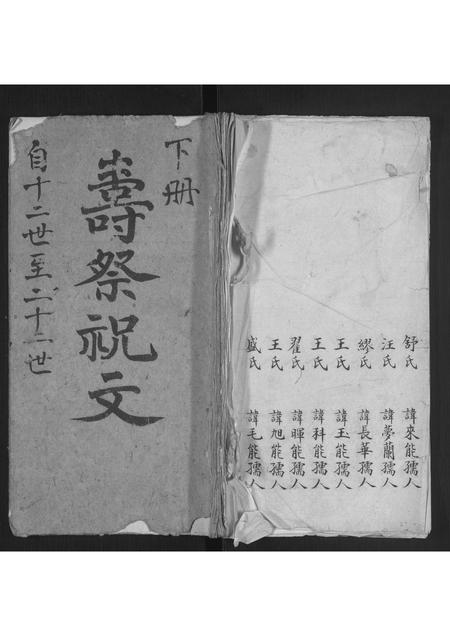 下册
壽祭祝文
自十二世至二十二世
舒氏 諱來能孺人
汪氏 諱夢蘭孺人
繆氏 諱長華孺人
王氏 諱玉能孺人
王氏 諱科能孺人
翟氏 諱暉能孺人
王氏 諱旭能孺人
盛氏 諱毛能孺人